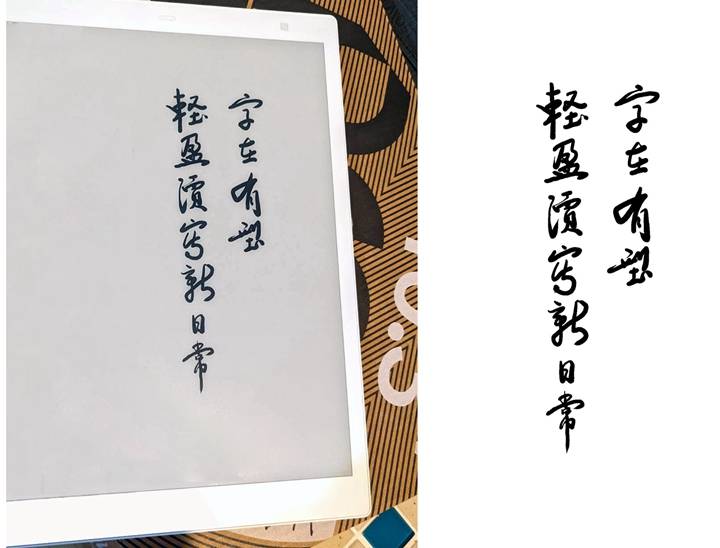 字在有型
輕盈讀寫新日常
字在有型
輕盈讀寫新日常